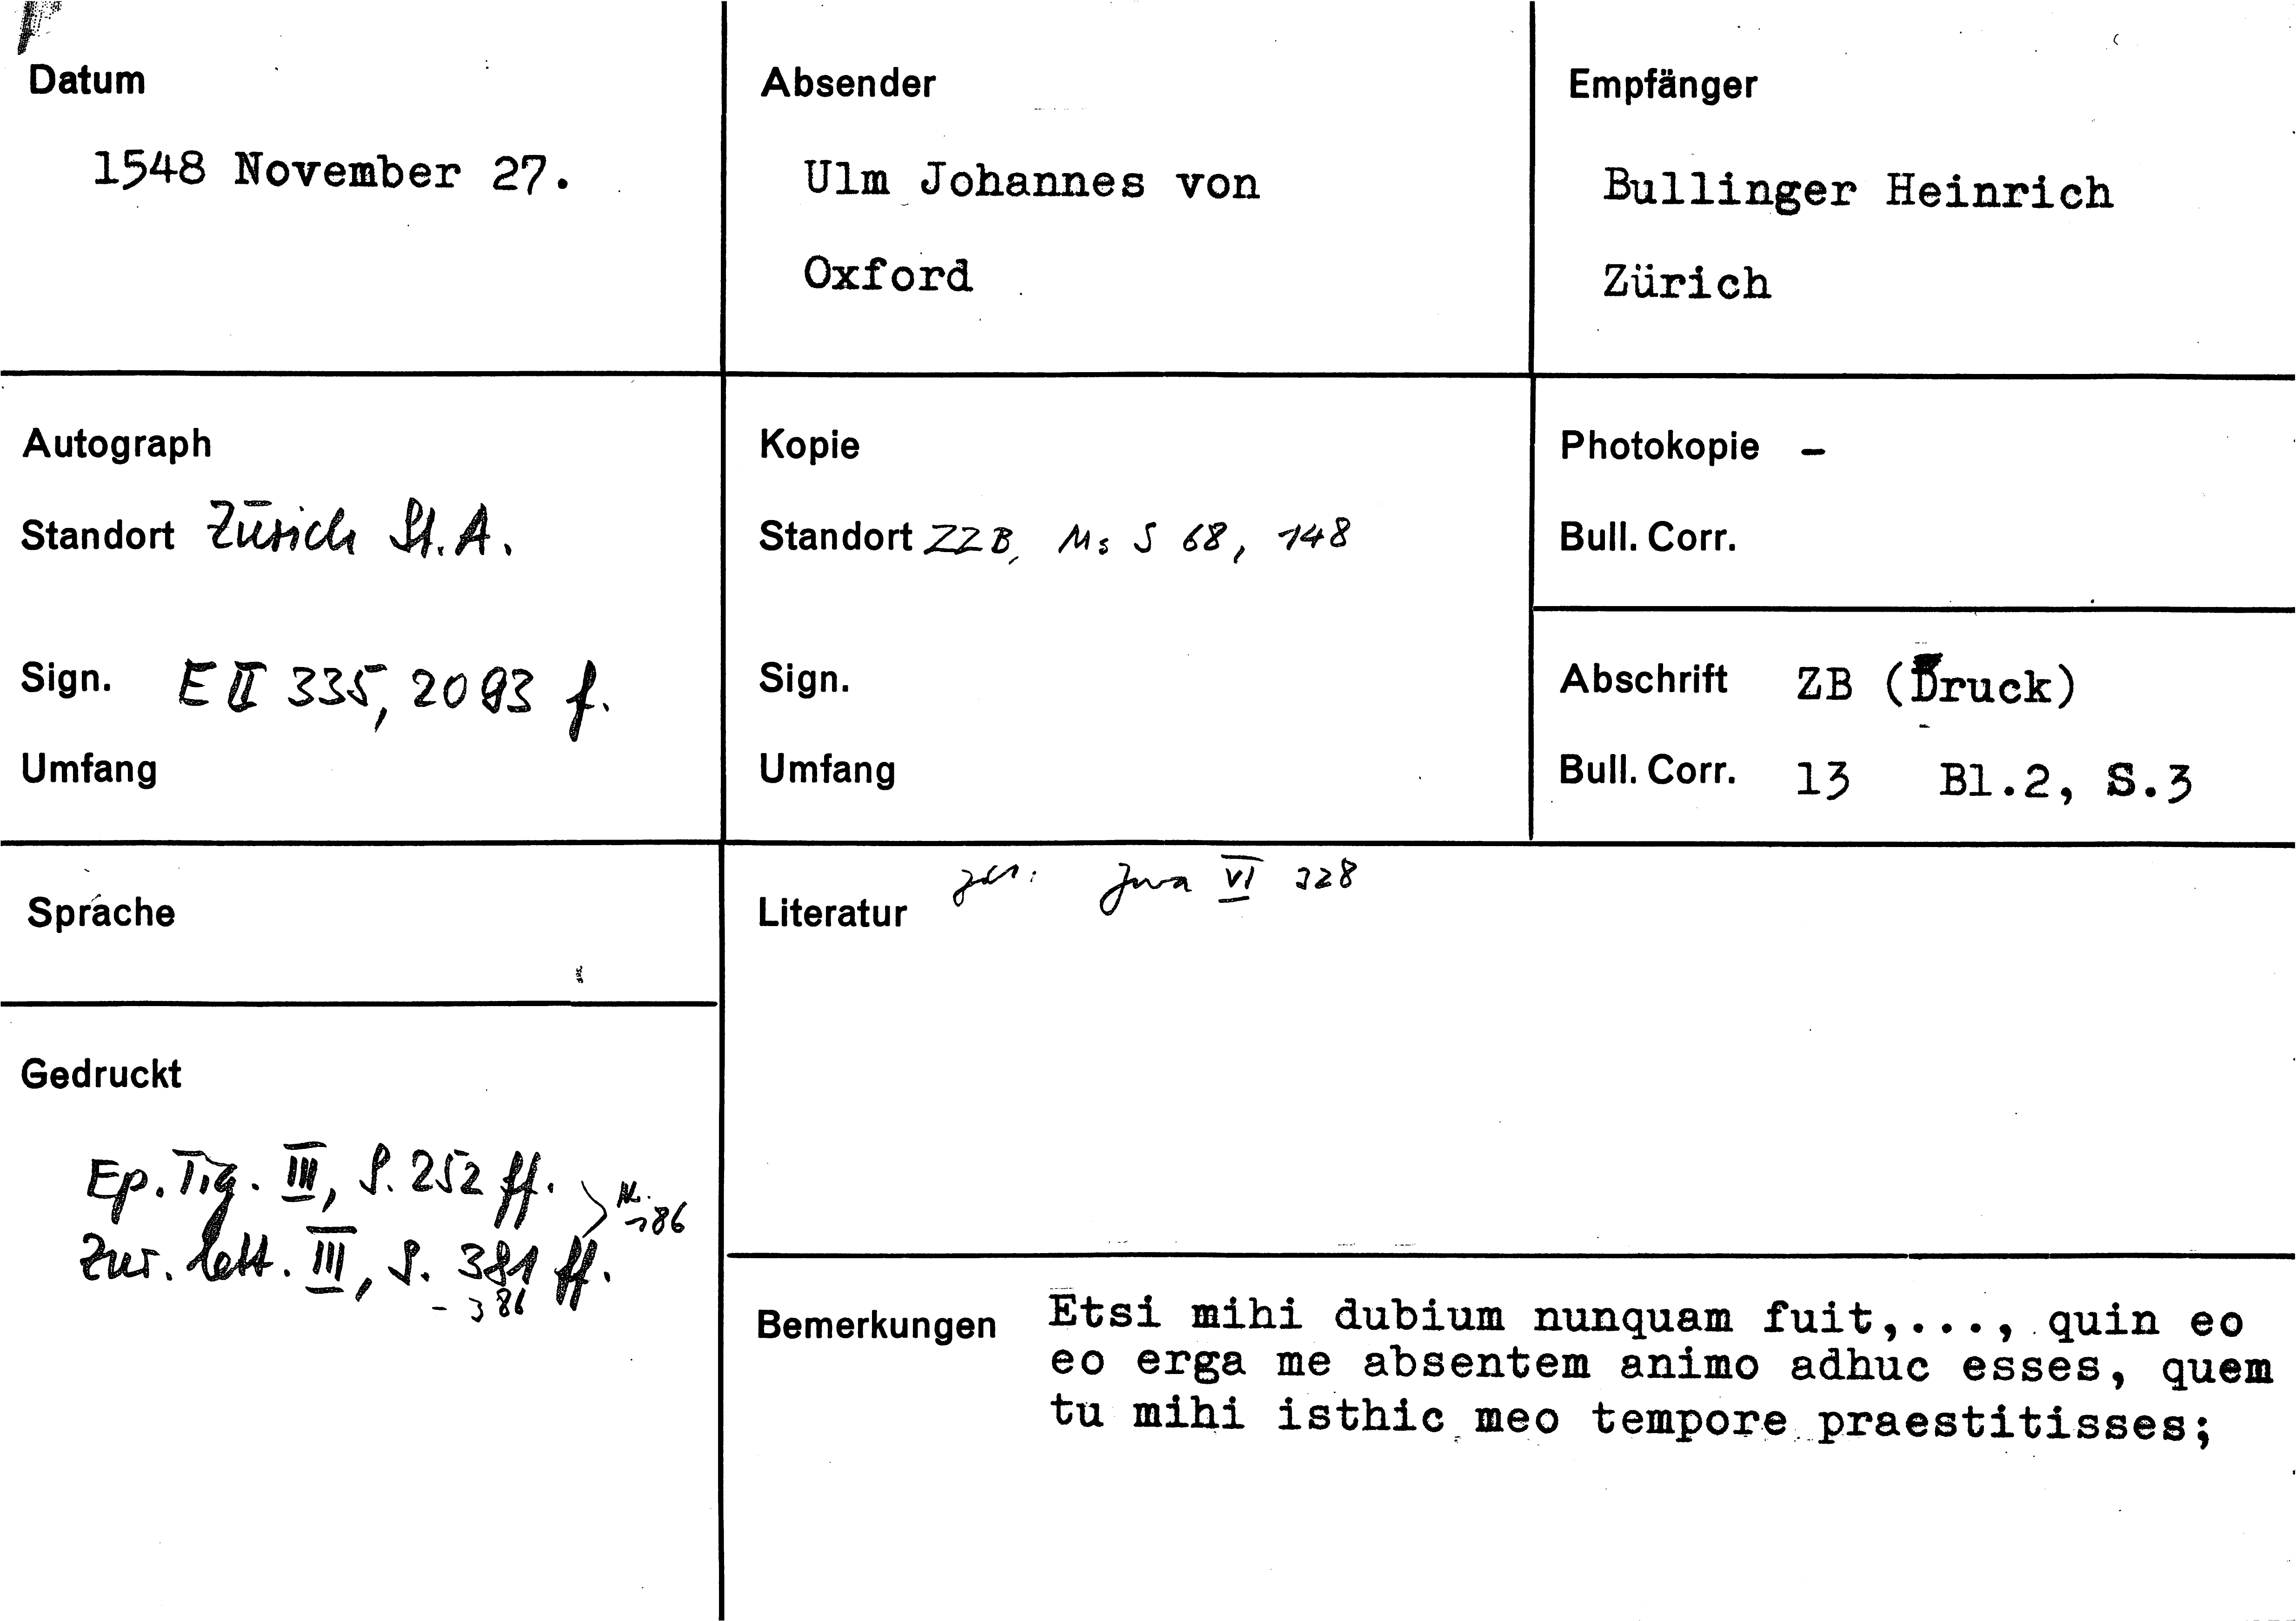 Datum
1548 November 27.
Absender
Ulm Johannes von
Oxford
Empfänger
Bullinger Heinrich
Zürich
Autograph
Standort Zürich St. A.
Sign. E II 335, 2093 f.
Umfang
Kopie
Standort ZZB, Ms S 68, 148
Sign.
Umfang
Photokopie -
Bull. Corr.
Abschrift ZB (Druck)
Bull. Corr. 13 Bl.2, S.3
Sprache
Literatur
VI 328
Gedruckt
Ep. Tig. III, S. 252 ff.
Nr. 186
Zur. lett. III, S. 381 ff.
- 386
Bemerkungen Etsi mihi dubium nunquam fuit,..., quin eo
eo erga me absentem animo adhuc esses, quem
tu mihi isthic meo tempore praestitisses;